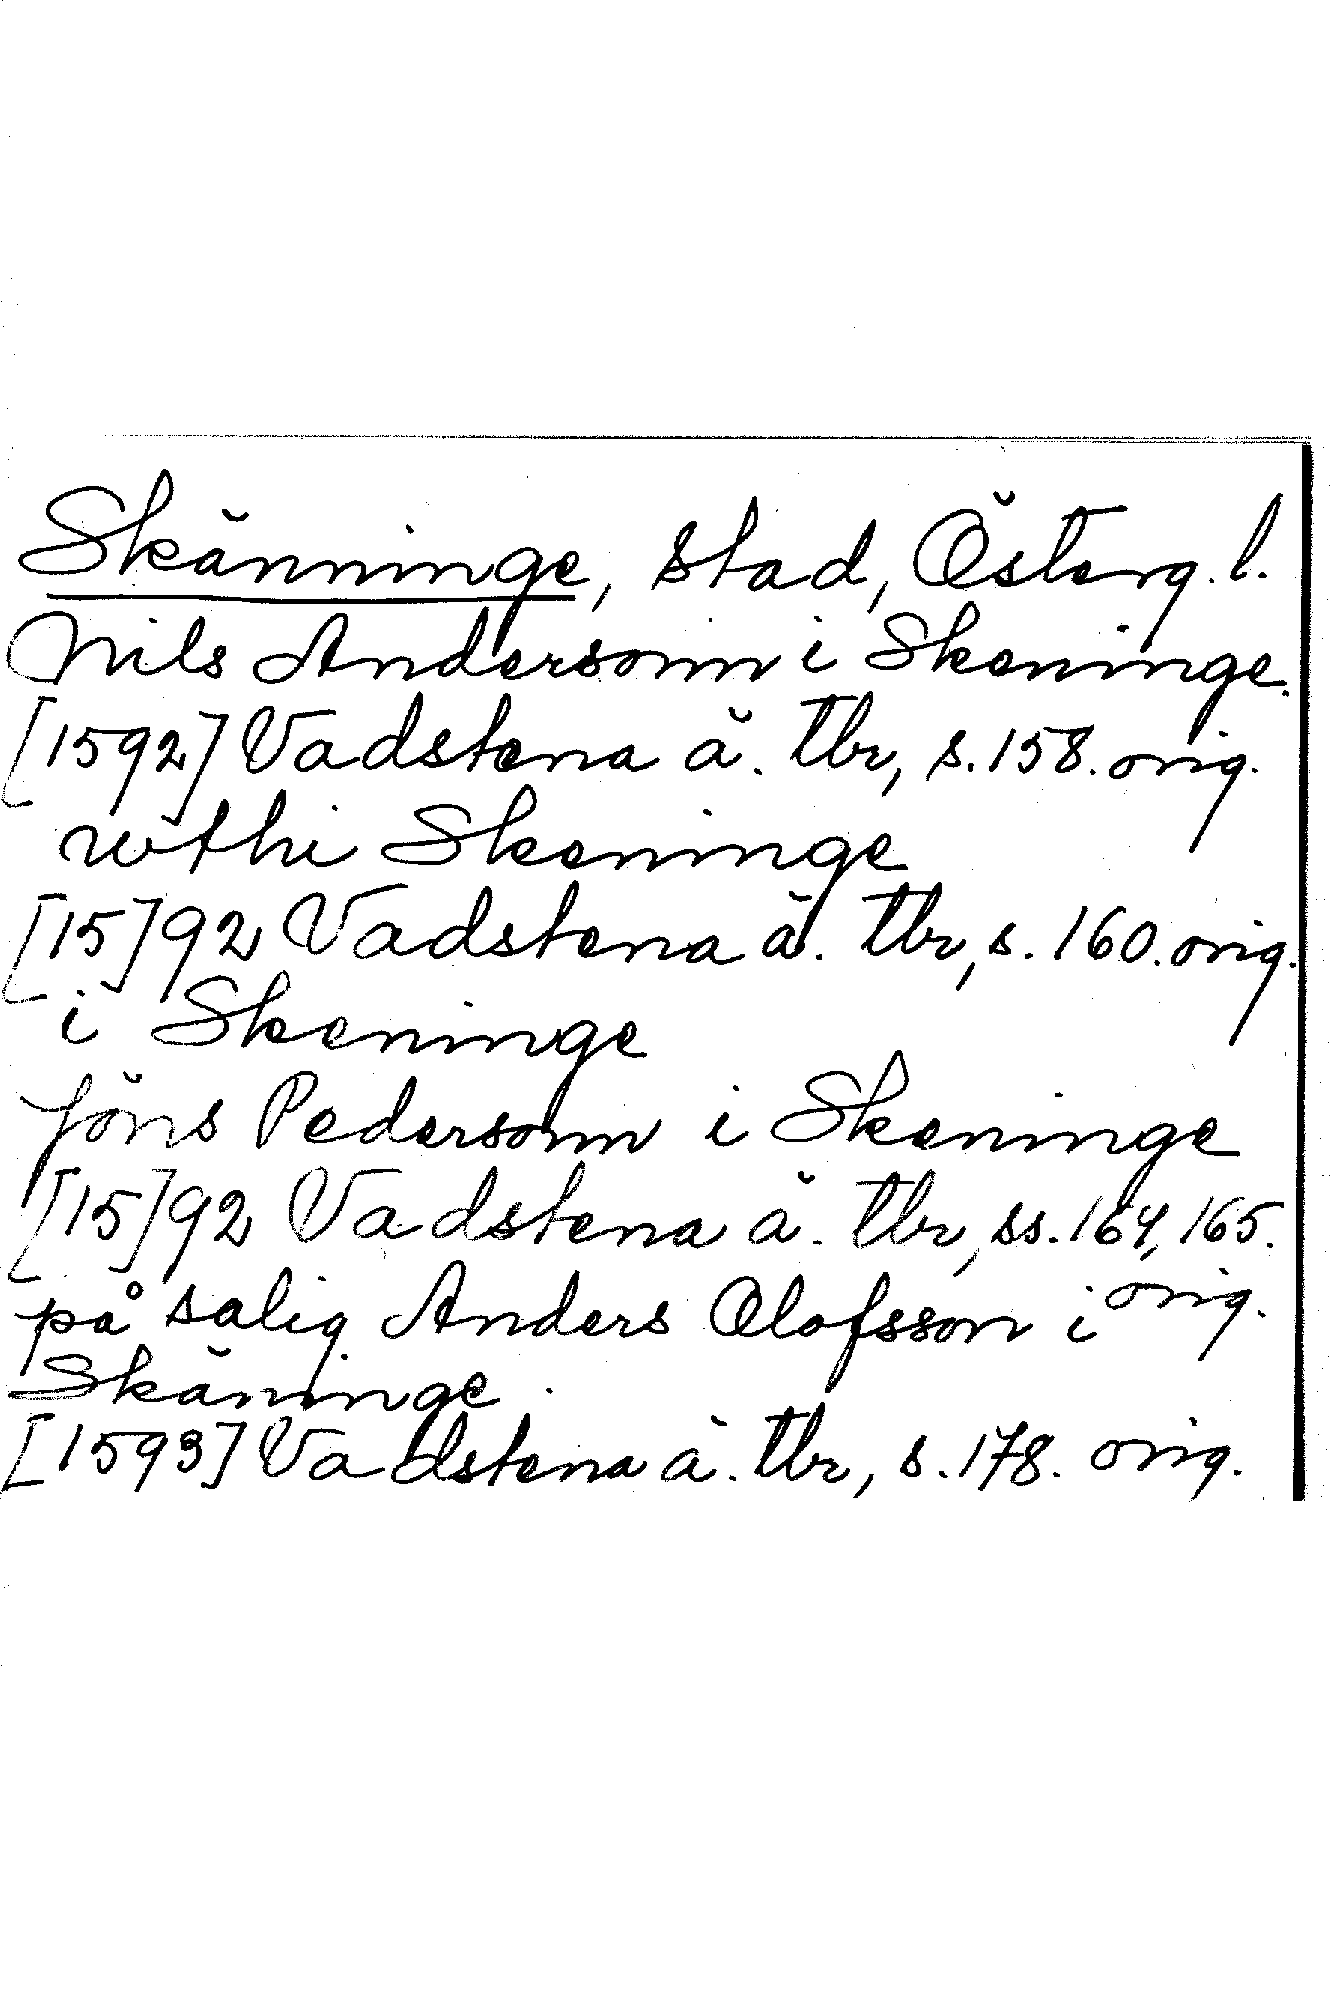 Skänninge, stad, Österg.l.
Nils Andersonn i Skeninge.
[1592] Vadstena ä. tbr, s. 158. orig.
wthi Skeninge
[15]92 Vadstena ä. tbr, s. 160. orig.
i Skeninge
Jöns Pedersonn i Skeninge
[15]92 Vadstena ä. tbr, ss. 164, 165.
orig.
på salig Anders Olofsson i
Skäninge
[1593] Vadstena ä. tbr, s. 178. orig.